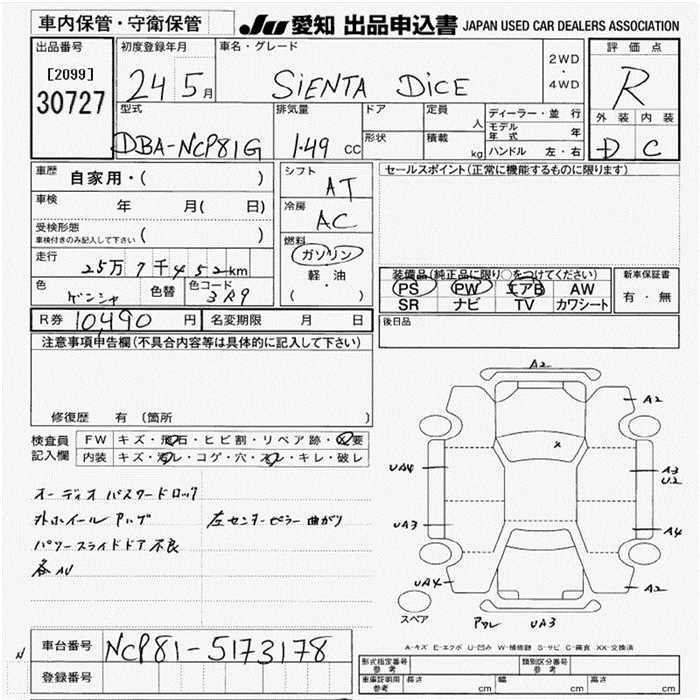 車内保管・守衛保管
JU 愛知 出品申込書 JAPAN USED CAR DEALERS ASSOCIATION
出品番号
[2099]
30727
初度登録年月
24 5月
車名・グレード
SIENTA DICE
2WD
・
4WD
評価点
R
外装 内装
D C
型式
DBA-NCP81G
排気量
1.49 CC
ドア
形状
定員
人
積載
kg
ディーラー・並行
モデル年式 年
ハンドル 左・右
車歴
自家用・( )
車検
年 月( 日)
受検形態
車検付きのみ記入して下さい ( )
走行
25万7千452km
色
ゲンシャ
色替
色コード
3R9
シフト
AT
冷房
AC
燃料
ガソリン
軽・油
( )
セールスポイント(正常に機能するものに限ります)
装備品(純正品に限り○をつけてください)
PS PW エアB AW
SR ナビ TV カワシート
新車保証書
有・無
後日品
R券 10,490 円
名変期限 月 日
注意事項申告欄(不具合内容等は具体的に記入して下さい)
修復歴 有 (箇所 )
検査員記入欄
FW キズ・飛石・ヒビ割・リペア跡・×要
内装 キズ・汚レ・コゲ・穴・スレ・キレ・破レ
オーディオ パスワードロック
外ホイール
左センターピラー 曲がり
パワースライドドア不良
各AU
A2
A2
UA4
A3
U2
UA3
A4
UA4
A2
UA3
スペア
A-キズ E-エクボ U-凹み W-補修跡 S-サビ C-腐食 XX-交換済
N
車台番号 NCP81-5173178
登録番号
形式指定番号 参考
類別区分番号 参考
車庫証明用 参考 長さ cm 幅 cm 高さ cm